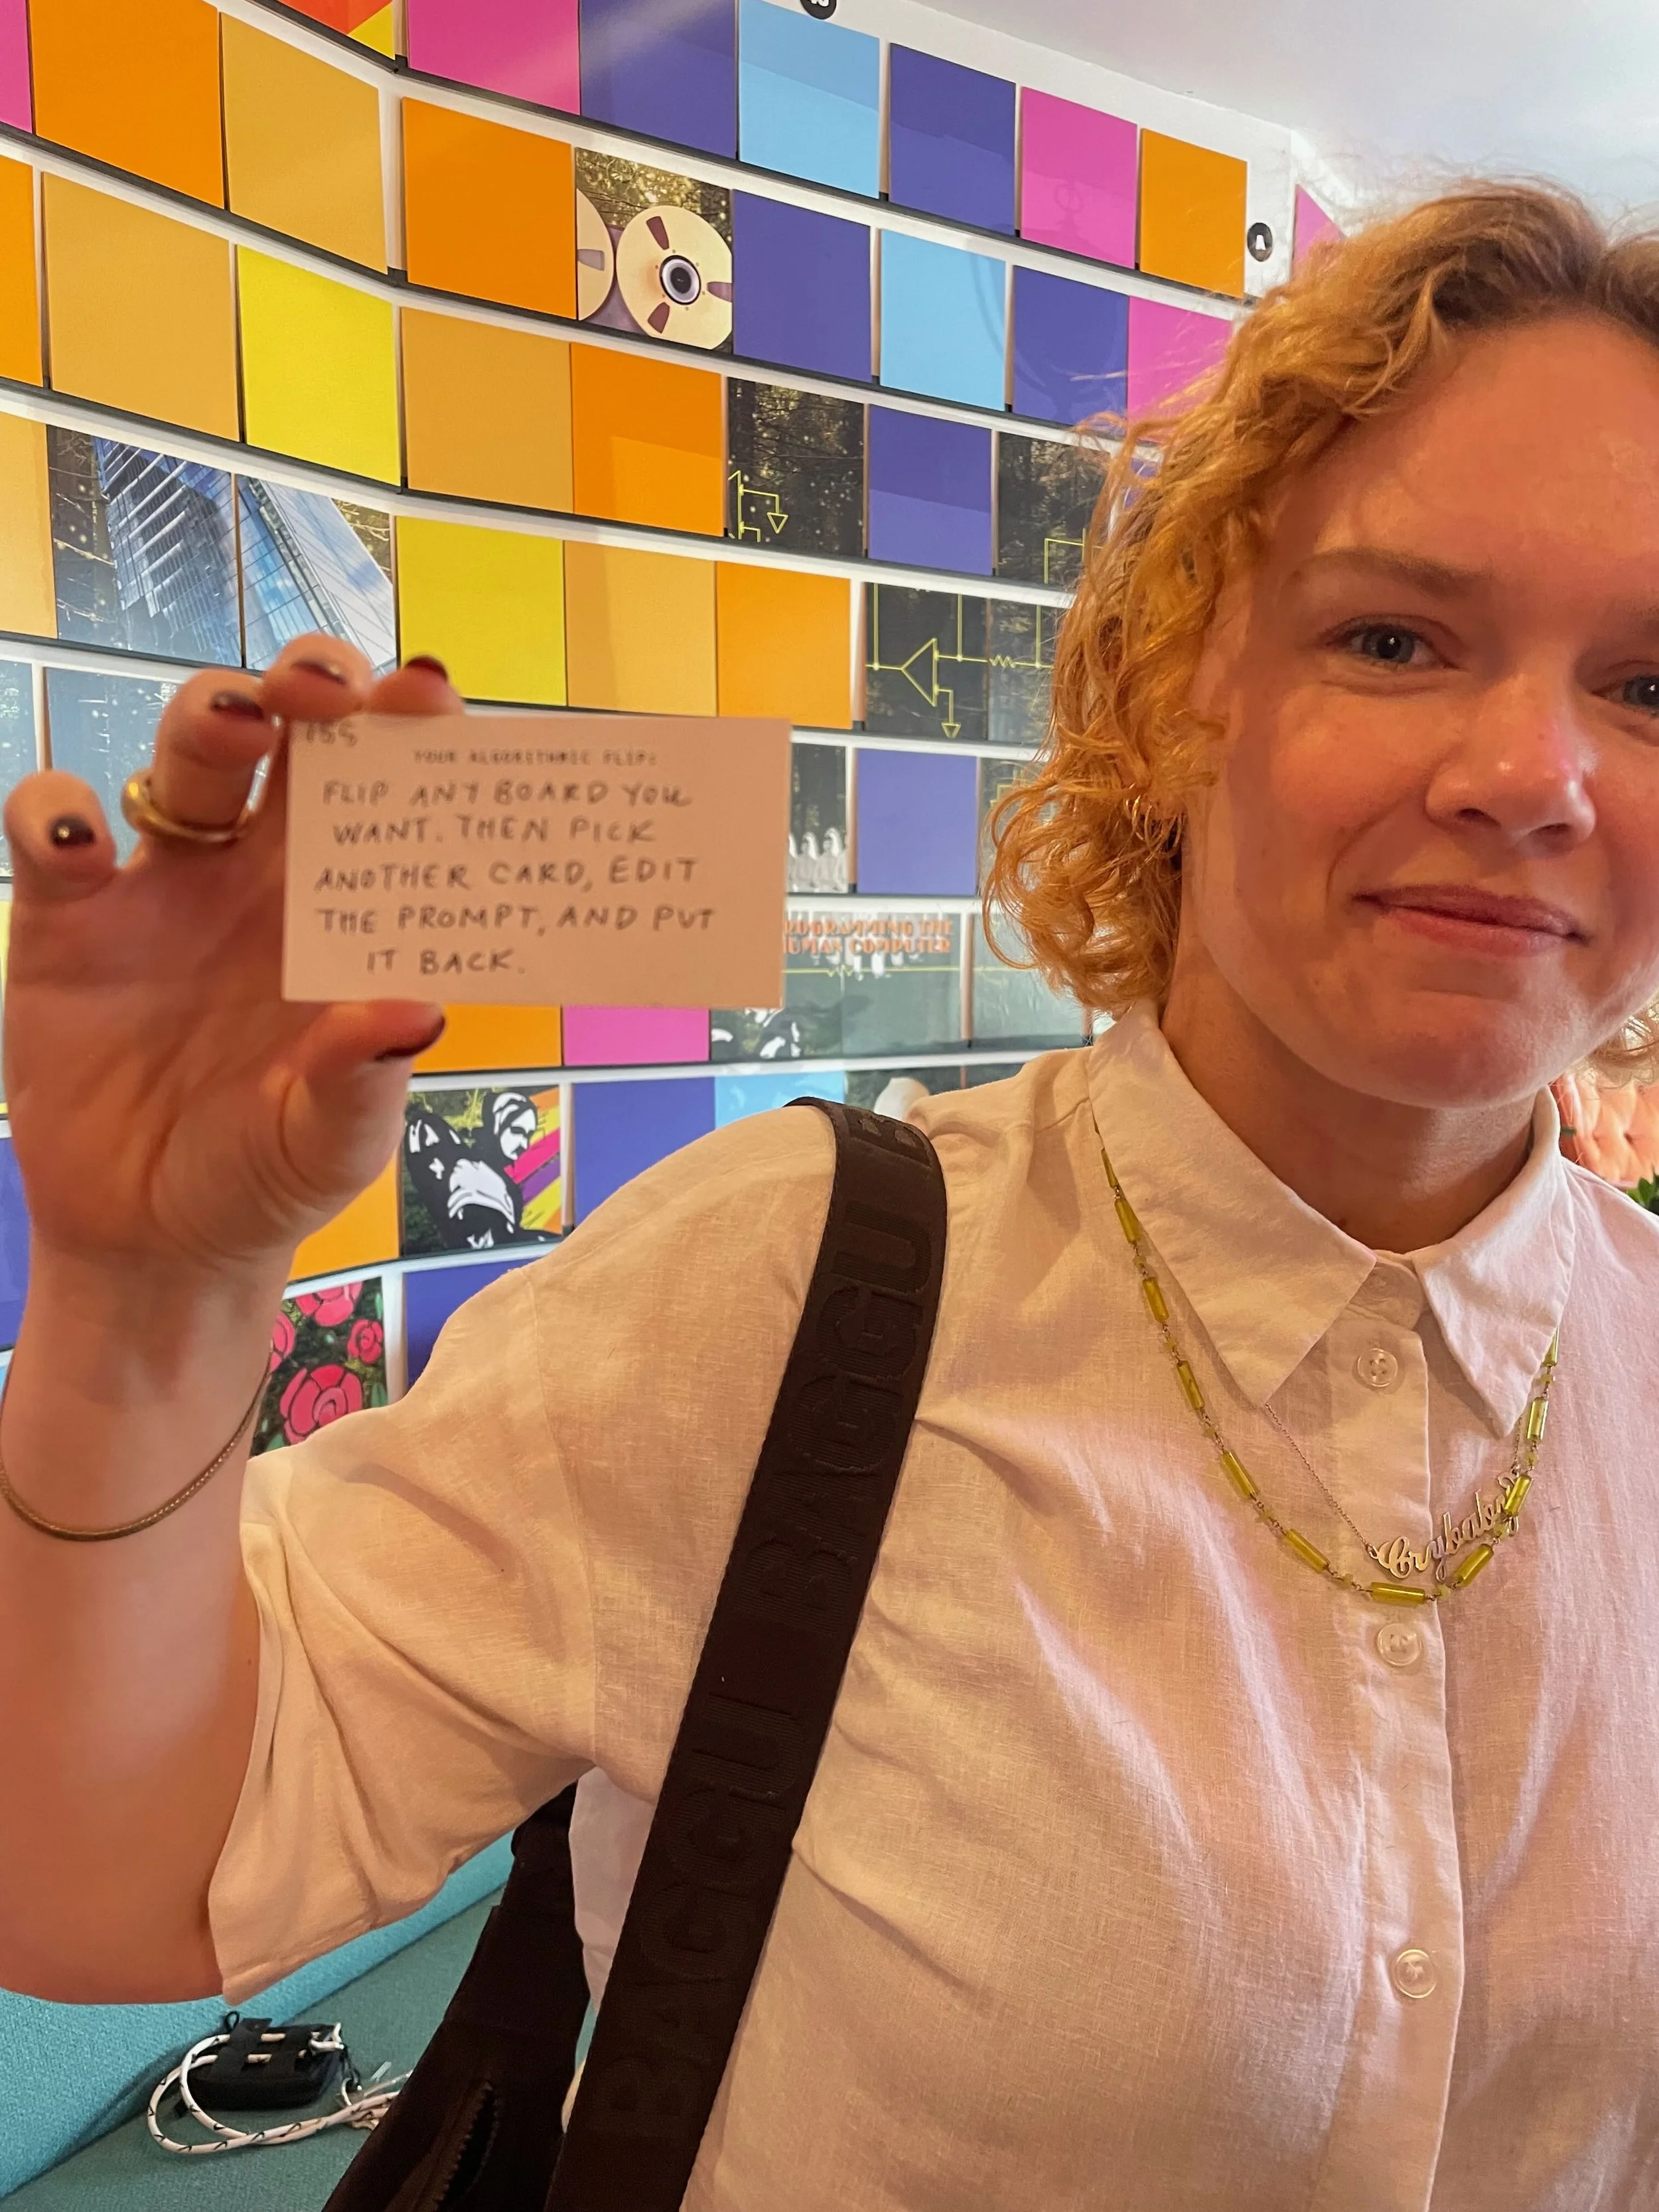 155
YOUR ALGORITHMIC FLIP:
FLIP ANY BOARD YOU
WANT. THEN PICK
ANOTHER CARD, EDIT
THE PROMPT, AND PUT
IT BACK.
A
PROGRAMMING THE
HUMAN COMPUTER
BAGGU BAGGU BAGGU
Crybaby